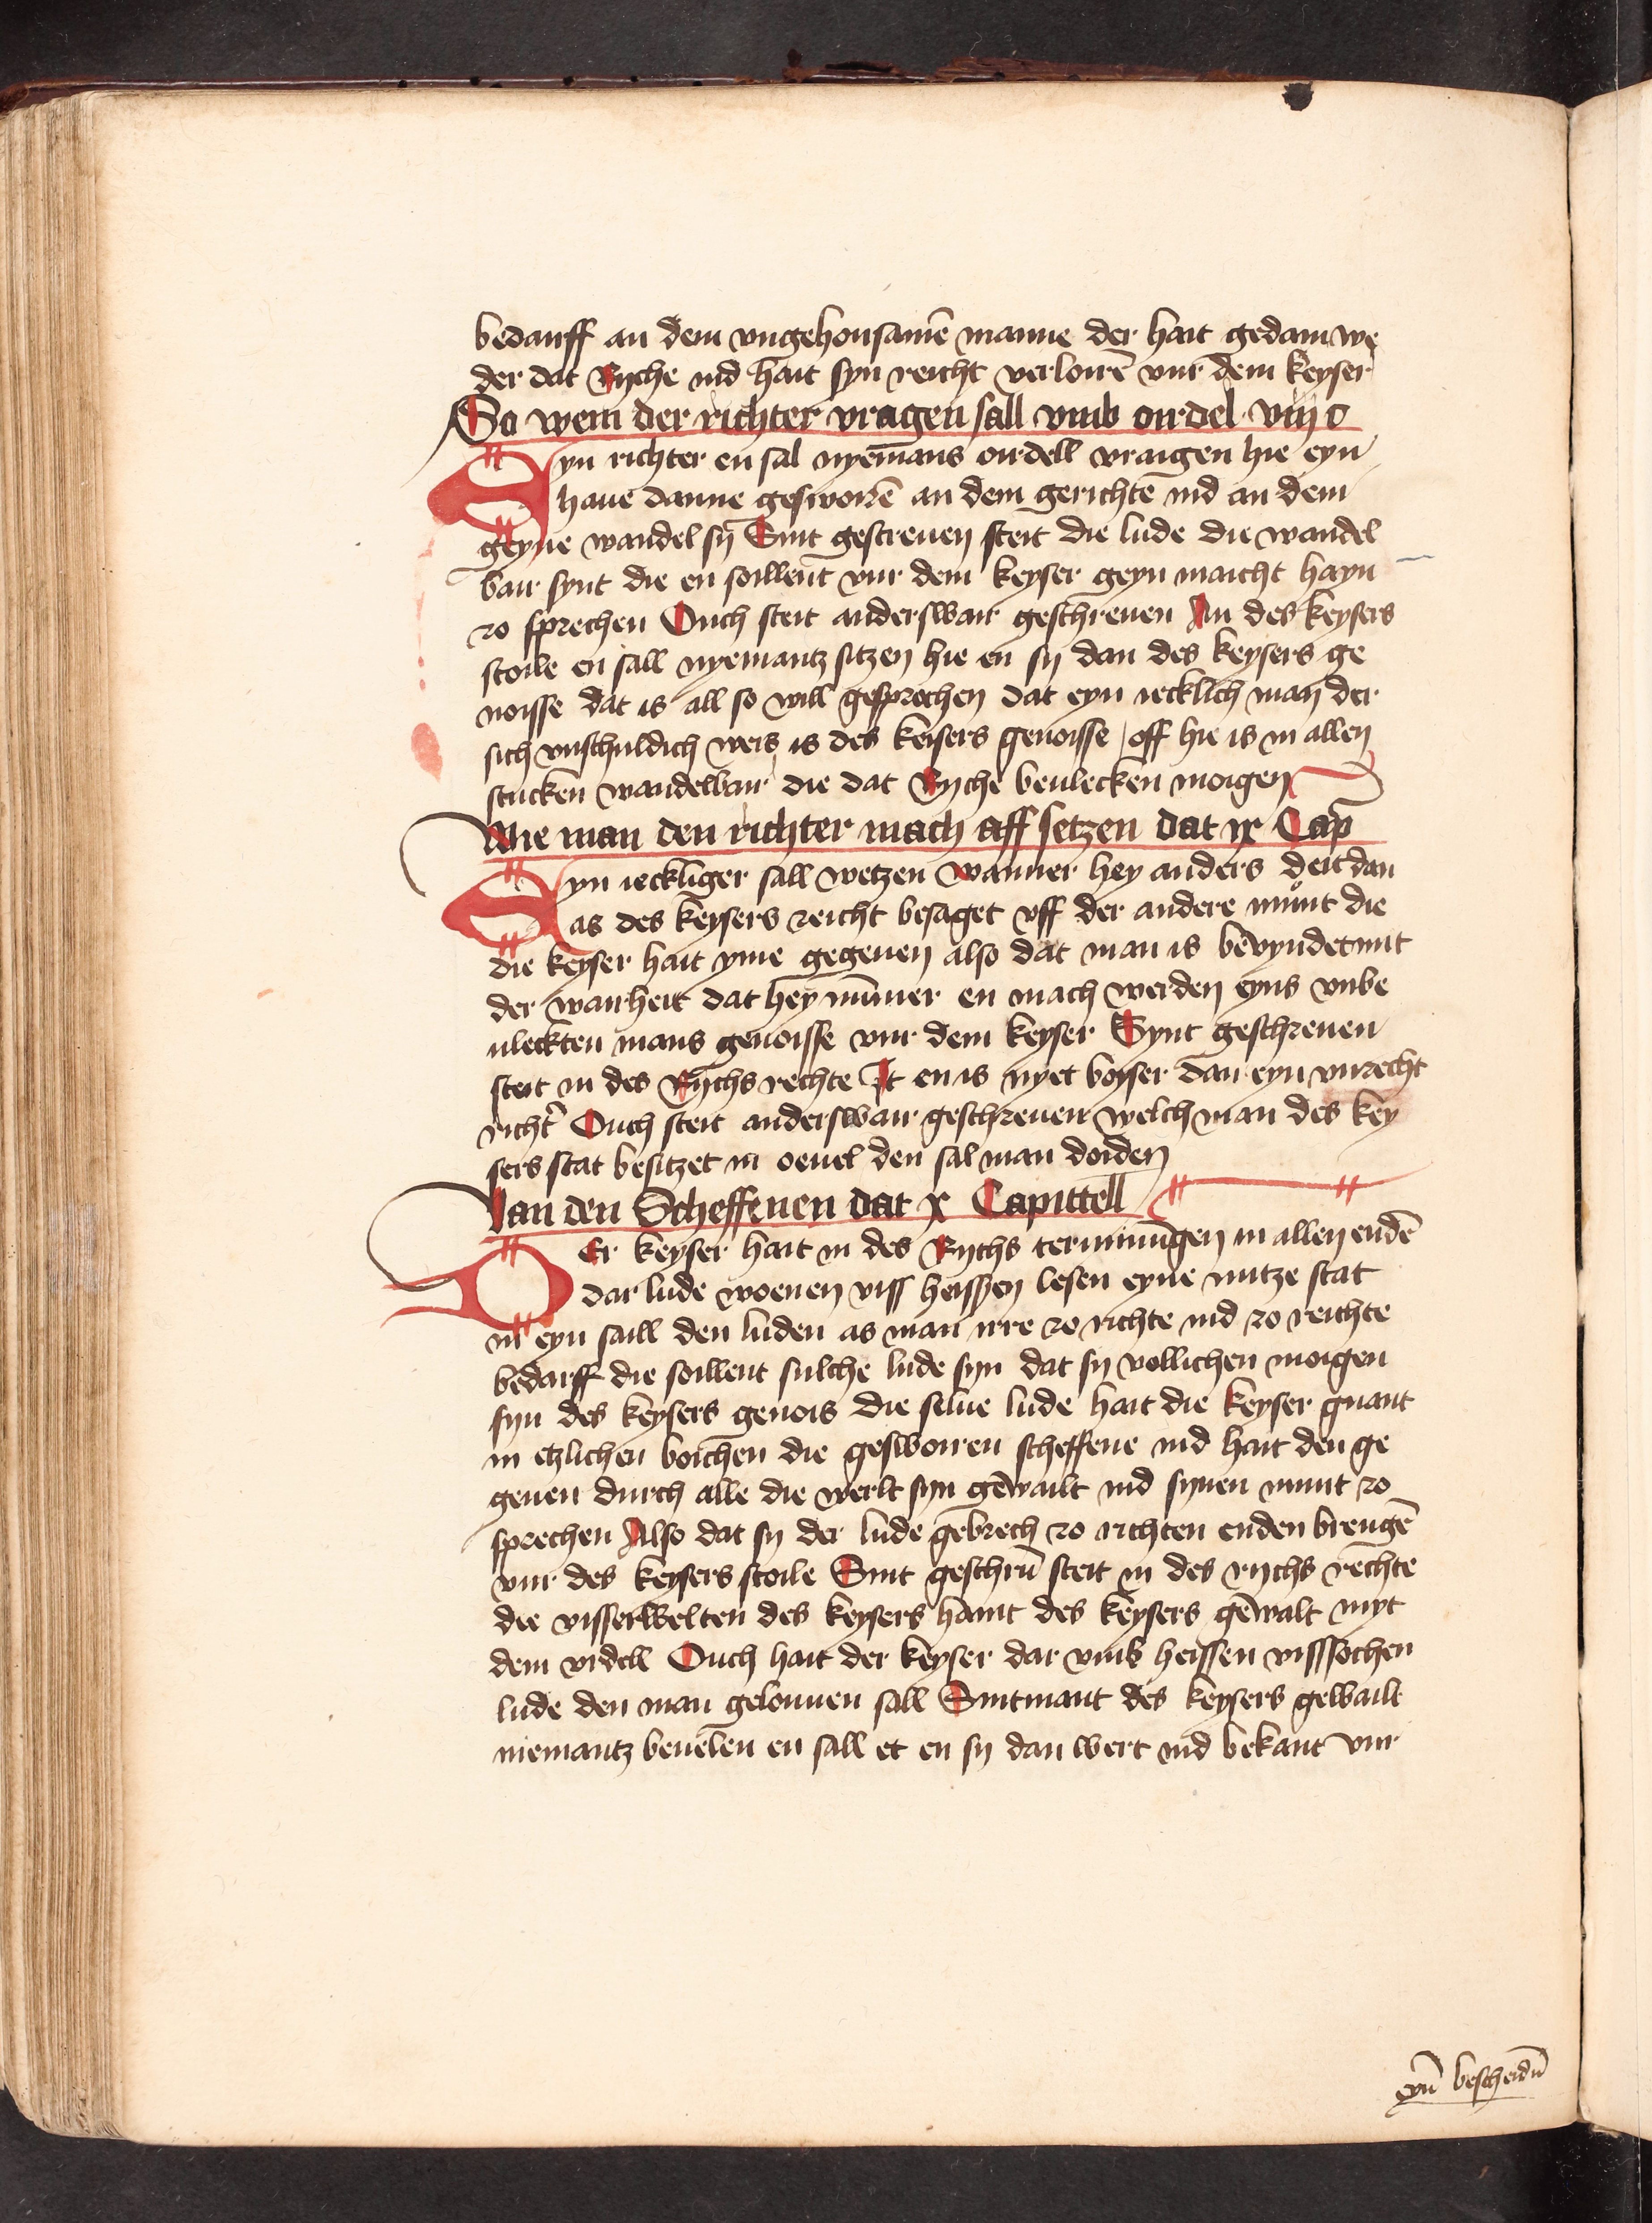 bedarff an dem vngehonsamē manne der hait gedain we
der dat Ryche ind hait syn reicht verloirē vur dem keyser
So wem der richter vragen sall vmb ordel viij c
Eyn richter en sal nyemans ordell vraigen hie eyn
haue danne gesworē an dem gerichte ind an dem
geyne wandel sy Sint gescreuen steit die lude die wandel
bair synt die en soillent vur dem keyser geyn maicht hayn
zo sprechen Ouch steit anderswair geschreuen An des keysers
stoile en sall nyemantz sitzen hie en sy dan des keysers ge
noisse dat is all so will gesprochen dat eyn iecklich man der
sich vnschuldich weis is des keisers genoisse / off hie is in allen
stucken wandelbair die dat Ryche beulecken moigen
Wie man den richter mach aff setzen dat ix Cap
Eyn ieckliger sall wetzen wanner hey anders deit dan
as des keysers reicht besaget vff der andere munt die
die keyser hait yme gegeuen also dat man is bevyndet mit
der wairheit dat hey nūmer en mach werden eyns vnbe
uleckten mans genoisse vur dem keyser Synt geschreuen
steit in des Rychs rechte It en is nyet boyser dan eyn vnrecht
richt' Ouch steit anderswair geschreuen welch man des key
sers stat besitzet in oeuel den sal man doiden
Van den Scheffenen dat x Capittell
DEr keyser hait in des Rychs termmungen in allen endē
dar lude woenen viss heissen lesen eyne nutze stat
in eyn saill den luden as man irre zo richte ind zo reichte
bedarff die soillent sulche lude syn dat sy vollichen moigen
syn des keysers genois die selue lude hait die keyser gnant
in etzlichen boichen die gesworen scheffene ind hait den ge
geuen durch alle die werlt syn gewailt ind synen munt zo
sprechen Also dat sy der lude gebrech zo richten enden brengē
vur des keysers stoile Sint geschrū steit in des rychs rechte
die visserwelten des keysers haint des keysers gewalt myt
dem vrdell Ouch hait der keyser dar vmb heissen visssochen
lude den man gelouuen sall Sintmant des keysers gewailt
niemantz beuelen en sall et en sy dan wert ind bekant vur
eyn bescheidn̄